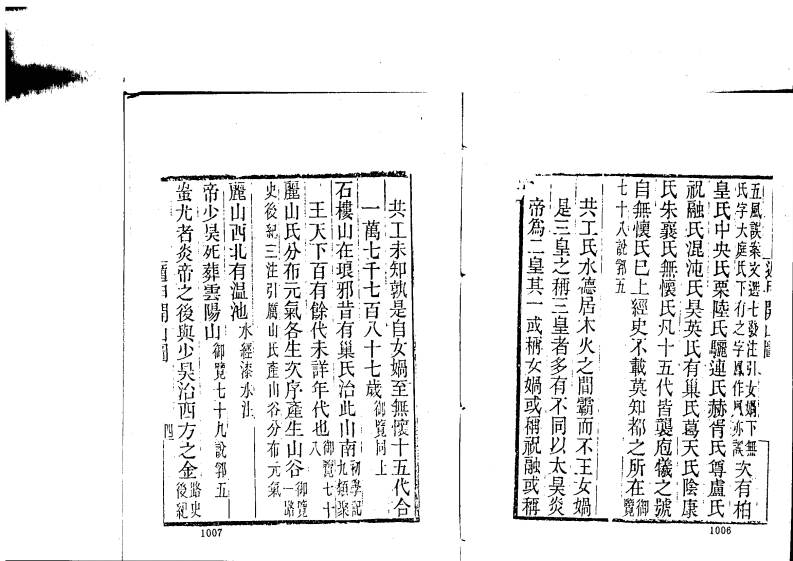 五風誤案文選七發注引女媧下無
氏字大庭氏下有之字鳳作風亦誤
次有柏
皇氏中央氏栗陸氏驪連氏赫胥氏尊盧氏
祝融氏混沌氏昊英氏有巢氏葛天氏陰康
氏朱襄氏無懷氏凡十五代皆襲庖犧之號
自無懷氏已上經史不載莫知都之所在御覽
七十八說郛五
共工氏水德居木火之間霸而不王女媧
是三皇之稱三皇者多有不同以太昊炎
帝爲二皇其一或稱女媧或稱祝融或稱
1006
共工未知孰是自女媧至無懷十五代合
一萬七千七百八十七歲御覽同上
石樓山在琅邪昔有巢氏治此山南初學記九類聚
王天下百有餘代未詳年代也御覽七十八
麗山氏分布元氣各生次序產生山谷御覽一路
史後紀三注引厲山氏產山谷分布元氣
麗山西北有温池水經漆水注
帝少昊死葬雲陽山御覽七十九說郛五
蚩尤者炎帝之後與少昊治西方之金路史後紀
遁甲開山圖
四
1007